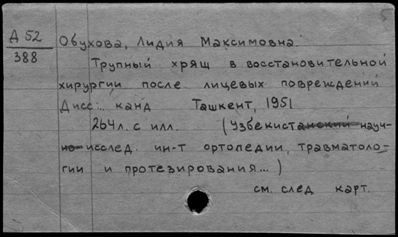 Д 52
388
Обухова, Лидия Максимовна.
Трупный хрящ в восстановительной
хирургии после лицевых повреждений
Дисс... канд Ташкент, 1951
264л. с илл. (Узбекистанский науч-
но-исслед. ин-т ортопедии, травматоло-
гии и протезирования...)
см. след карт.